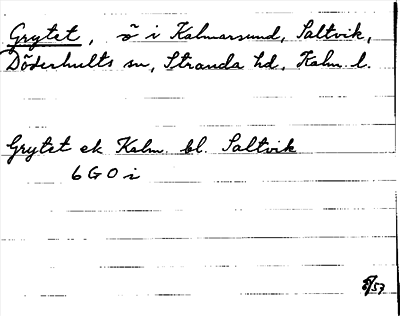 Grytet, ö i Kalmarsund, Saltvik,
Döderhults sn, Stranda hd, Kalm. l.
Grytet ek Kalm. bl. Saltvik
6 G 0 i
/53